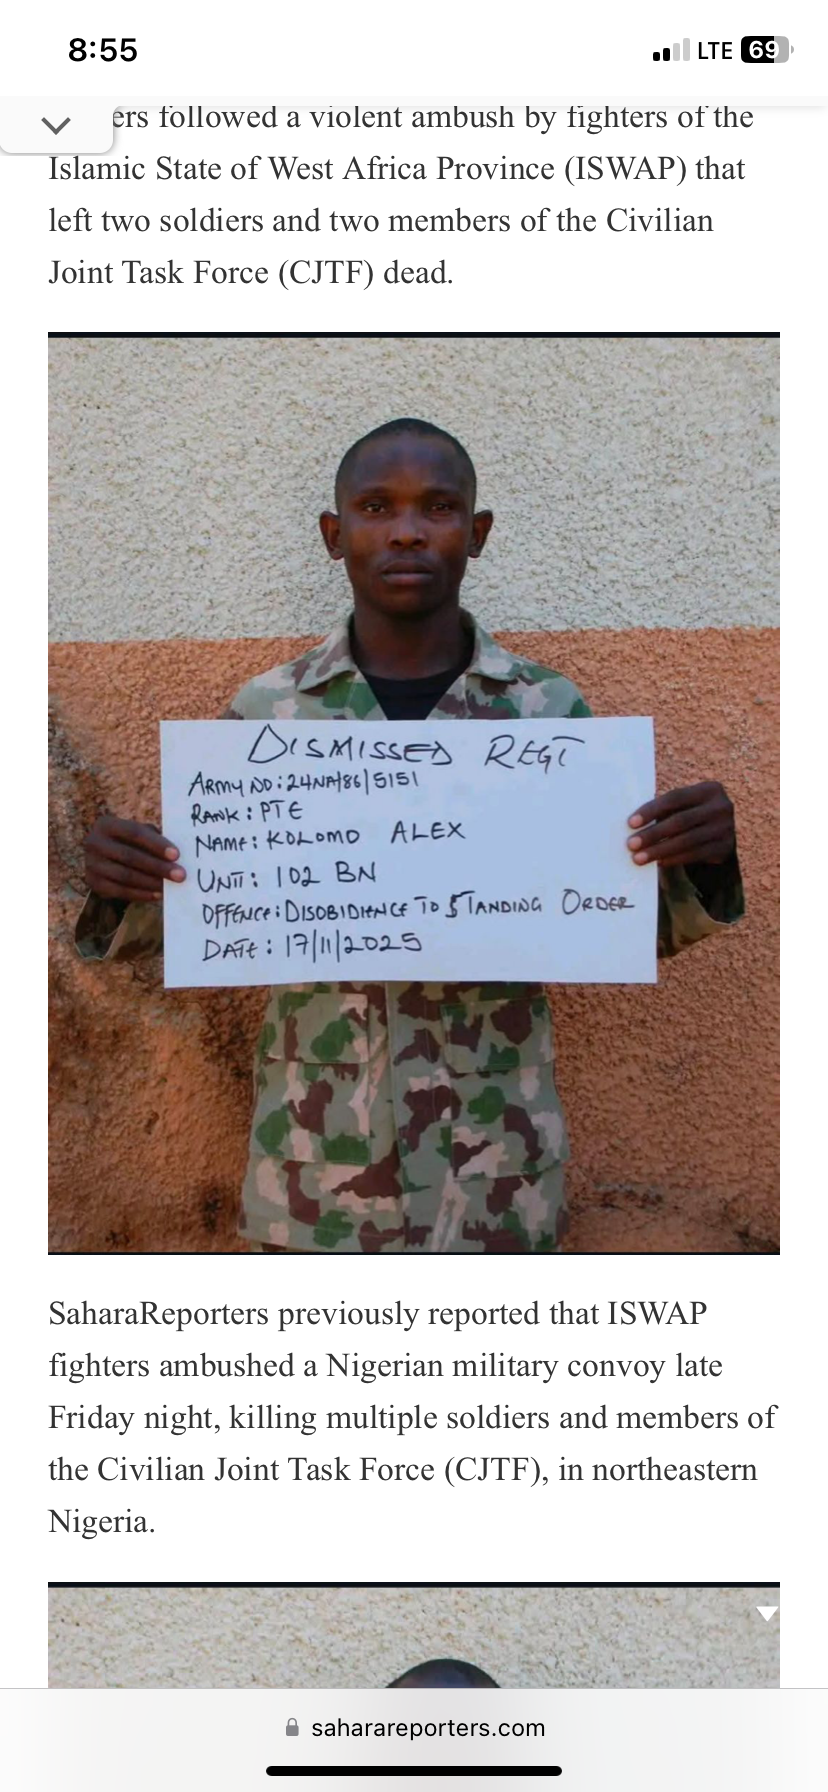 8:55
LTE 69
ers followed a violent ambush by fighters of the
Islamic State of West Africa Province (ISWAP) that
left two soldiers and two members of the Civilian
Joint Task Force (CJTF) dead.
DISMISSED REGT
ARMY NO: 24NA/86/5151
RANK: PTE
NAME: KOLOMO ALEX
UNIT: 102 BN
OFFENCE: DISOBIDIENCE TO STANDING ORDER
DATE: 17/11/2025
SaharaReporters previously reported that ISWAP
fighters ambushed a Nigerian military convoy late
Friday night, killing multiple soldiers and members of
the Civilian Joint Task Force (CJTF), in northeastern
Nigeria.
saharareporters.com